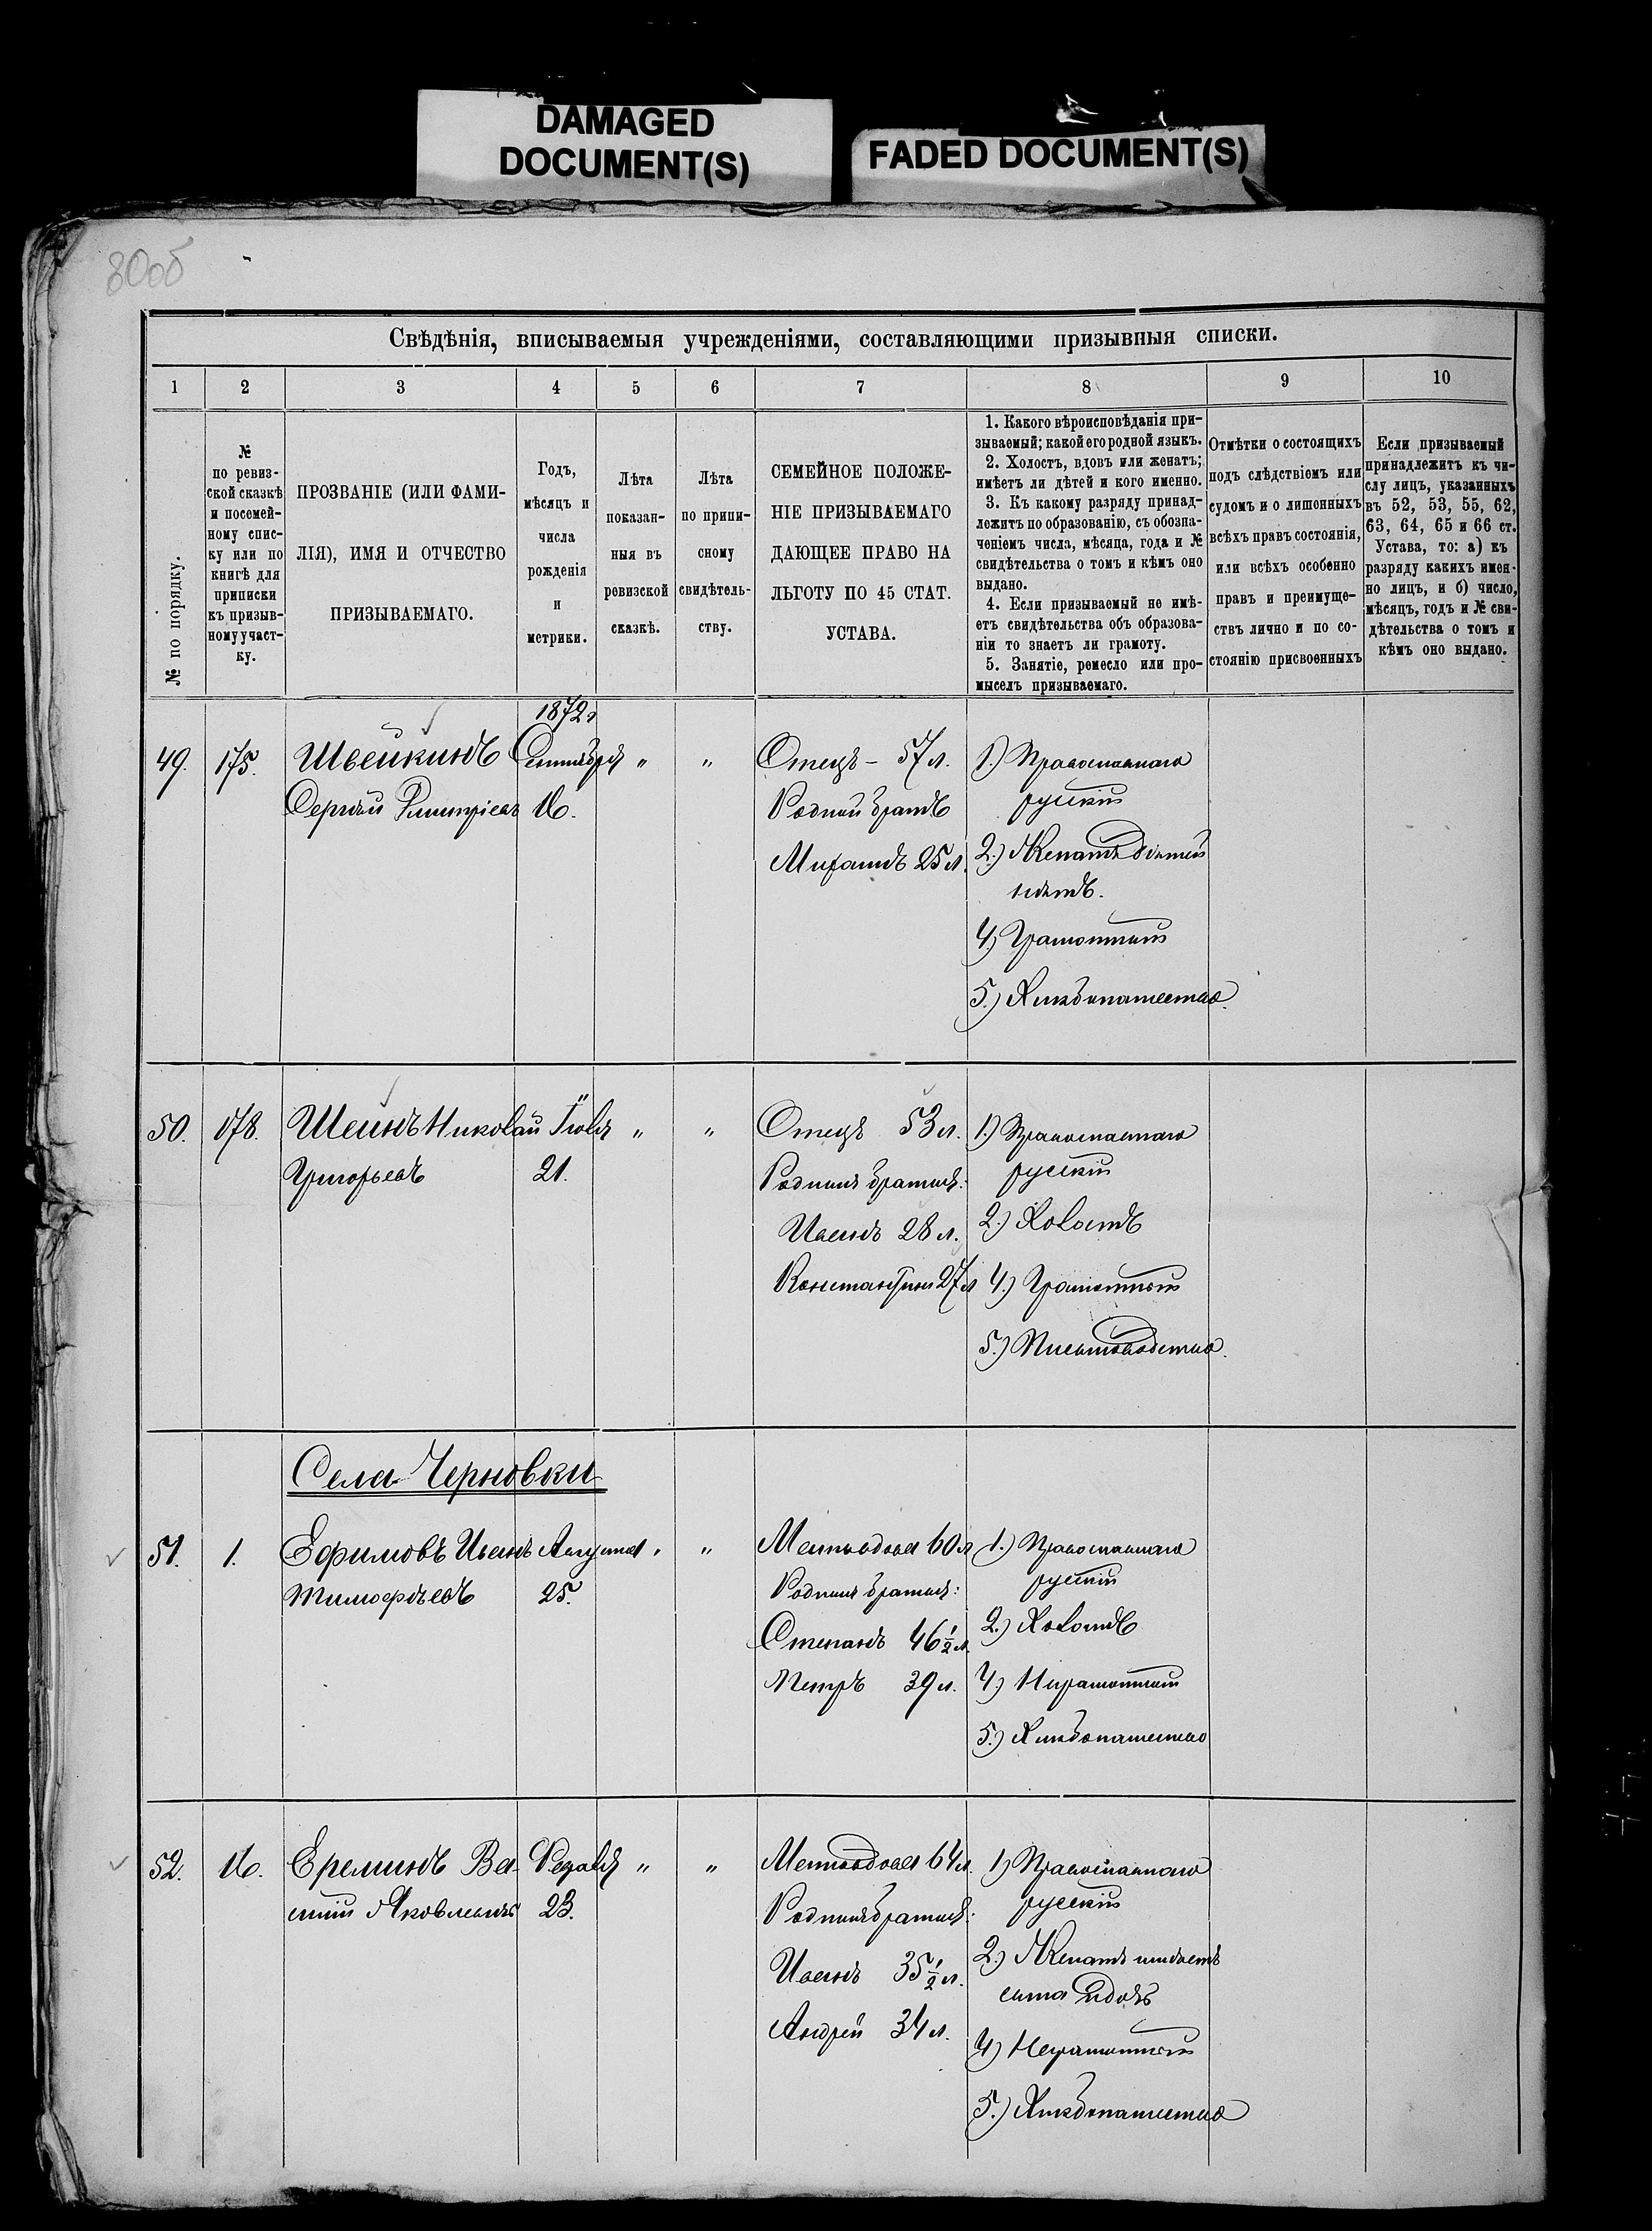 DAMAGED
DOCUMENT(S)
FADED DOCUMENT(S)
80об
Свѣдѣнія, вписываемыя учрежденіями, составляющими призывныя списки.
1 2 3 4 5 6 7 8 9 10
№ по порядку.
№
по ревиз-
ской сказкѣ
и посемей-
ному спис-
ку или по
книгѣ для
приписки
къ призыв-
ному участ-
ку.
ПРОЗВАНІЕ (ИЛИ ФАМИ-
ЛІЯ), ИМЯ И ОТЧЕСТВО
ПРИЗЫВАЕМАГО.
Годъ,
мѣсяцъ и
числа
рожденія
и
метрики.
Лѣта
показан-
ныя въ
ревизской
сказкѣ.
Лѣта
по припи-
сному
свидѣтель-
ству.
СЕМЕЙНОЕ ПОЛОЖЕ-
НІЕ ПРИЗЫВАЕМАГО
ДАЮЩЕЕ ПРАВО НА
ЛЬГОТУ ПО 45 СТАТ.
УСТАВА.
1. Какого вѣроисповѣданія при-
зываемый; какой его родной языкъ.
2. Холостъ, вдовъ или женатъ;
имѣетъ ли дѣтей и кого именно.
3. Къ какому разряду принад-
лежитъ по образованію, съ обозна-
ченіемъ числа, мѣсяца, года и №
свидѣтельства о томъ и кѣмъ оно
выдано.
4. Если призываемый не имѣ-
етъ свидѣтельства объ образова-
ніи то знаетъ ли грамоту.
5. Занятіе, ремесло или про-
мыселъ призываемаго.
Отмѣтки о состоящихъ
подъ слѣдствіемъ или
судомъ и о лишонныхъ
всѣхъ правъ состоянія,
или всѣхъ особенно
правъ и преимуще-
ствъ лично и по со-
стоянію присвоенныхъ
Если призываемый
принадлежитъ къ чи-
слу лицъ, указанныхъ
въ 52, 53, 55, 62,
63, 64, 65 и 66 ст.
Устава, то: а) къ
разряду какихъ имен-
но лицъ, и б) число,
мѣсяцъ, годъ и № сви-
дѣтельства о томъ и
кѣмъ оно выдано.
1872г
49. 175. Швейкинъ Сентября " " Отецъ – 57 л. 1.) Православнаго
Сергѣй Дмитріевъ 16. Родной братъ русскій
Михаилъ 25 л. 2.) Женатъ дѣтей
нѣтъ.
4.) Грамотный
5.) Хлѣбопашество.
50. 178. Шеинъ Николай Іюля " " Отецъ 53 л. 1.) Православнаго
Григорьевъ 21. Родныя братья: русскій
Иванъ 28 л. 2.) Холостъ
Константинъ 27 л 4.) Грамотный
5.) Письмоводство.
Села Черновки
51. 1. Ефимовъ Иванъ Августа " " Мать вдова 60 л 1.) Православнаго
Тимофѣевъ 25. Родныя братья: русскій
Степанъ 46 1/2 л. 2.) Холостъ
Петръ 39 л. 4.) Неграмотный
5.) Хлѣбопашество
52. 16. Ереминъ Ва- " " Мать вдова 64 л. 1) Православнаго
силій Яковлевичъ 23. Родныя братья: русскій
Иванъ 35 1/2 л. 2.) Женатъ имѣетъ
Андрей 34 л. сына
4) Неграмотный
5.) Хлѣбопашество